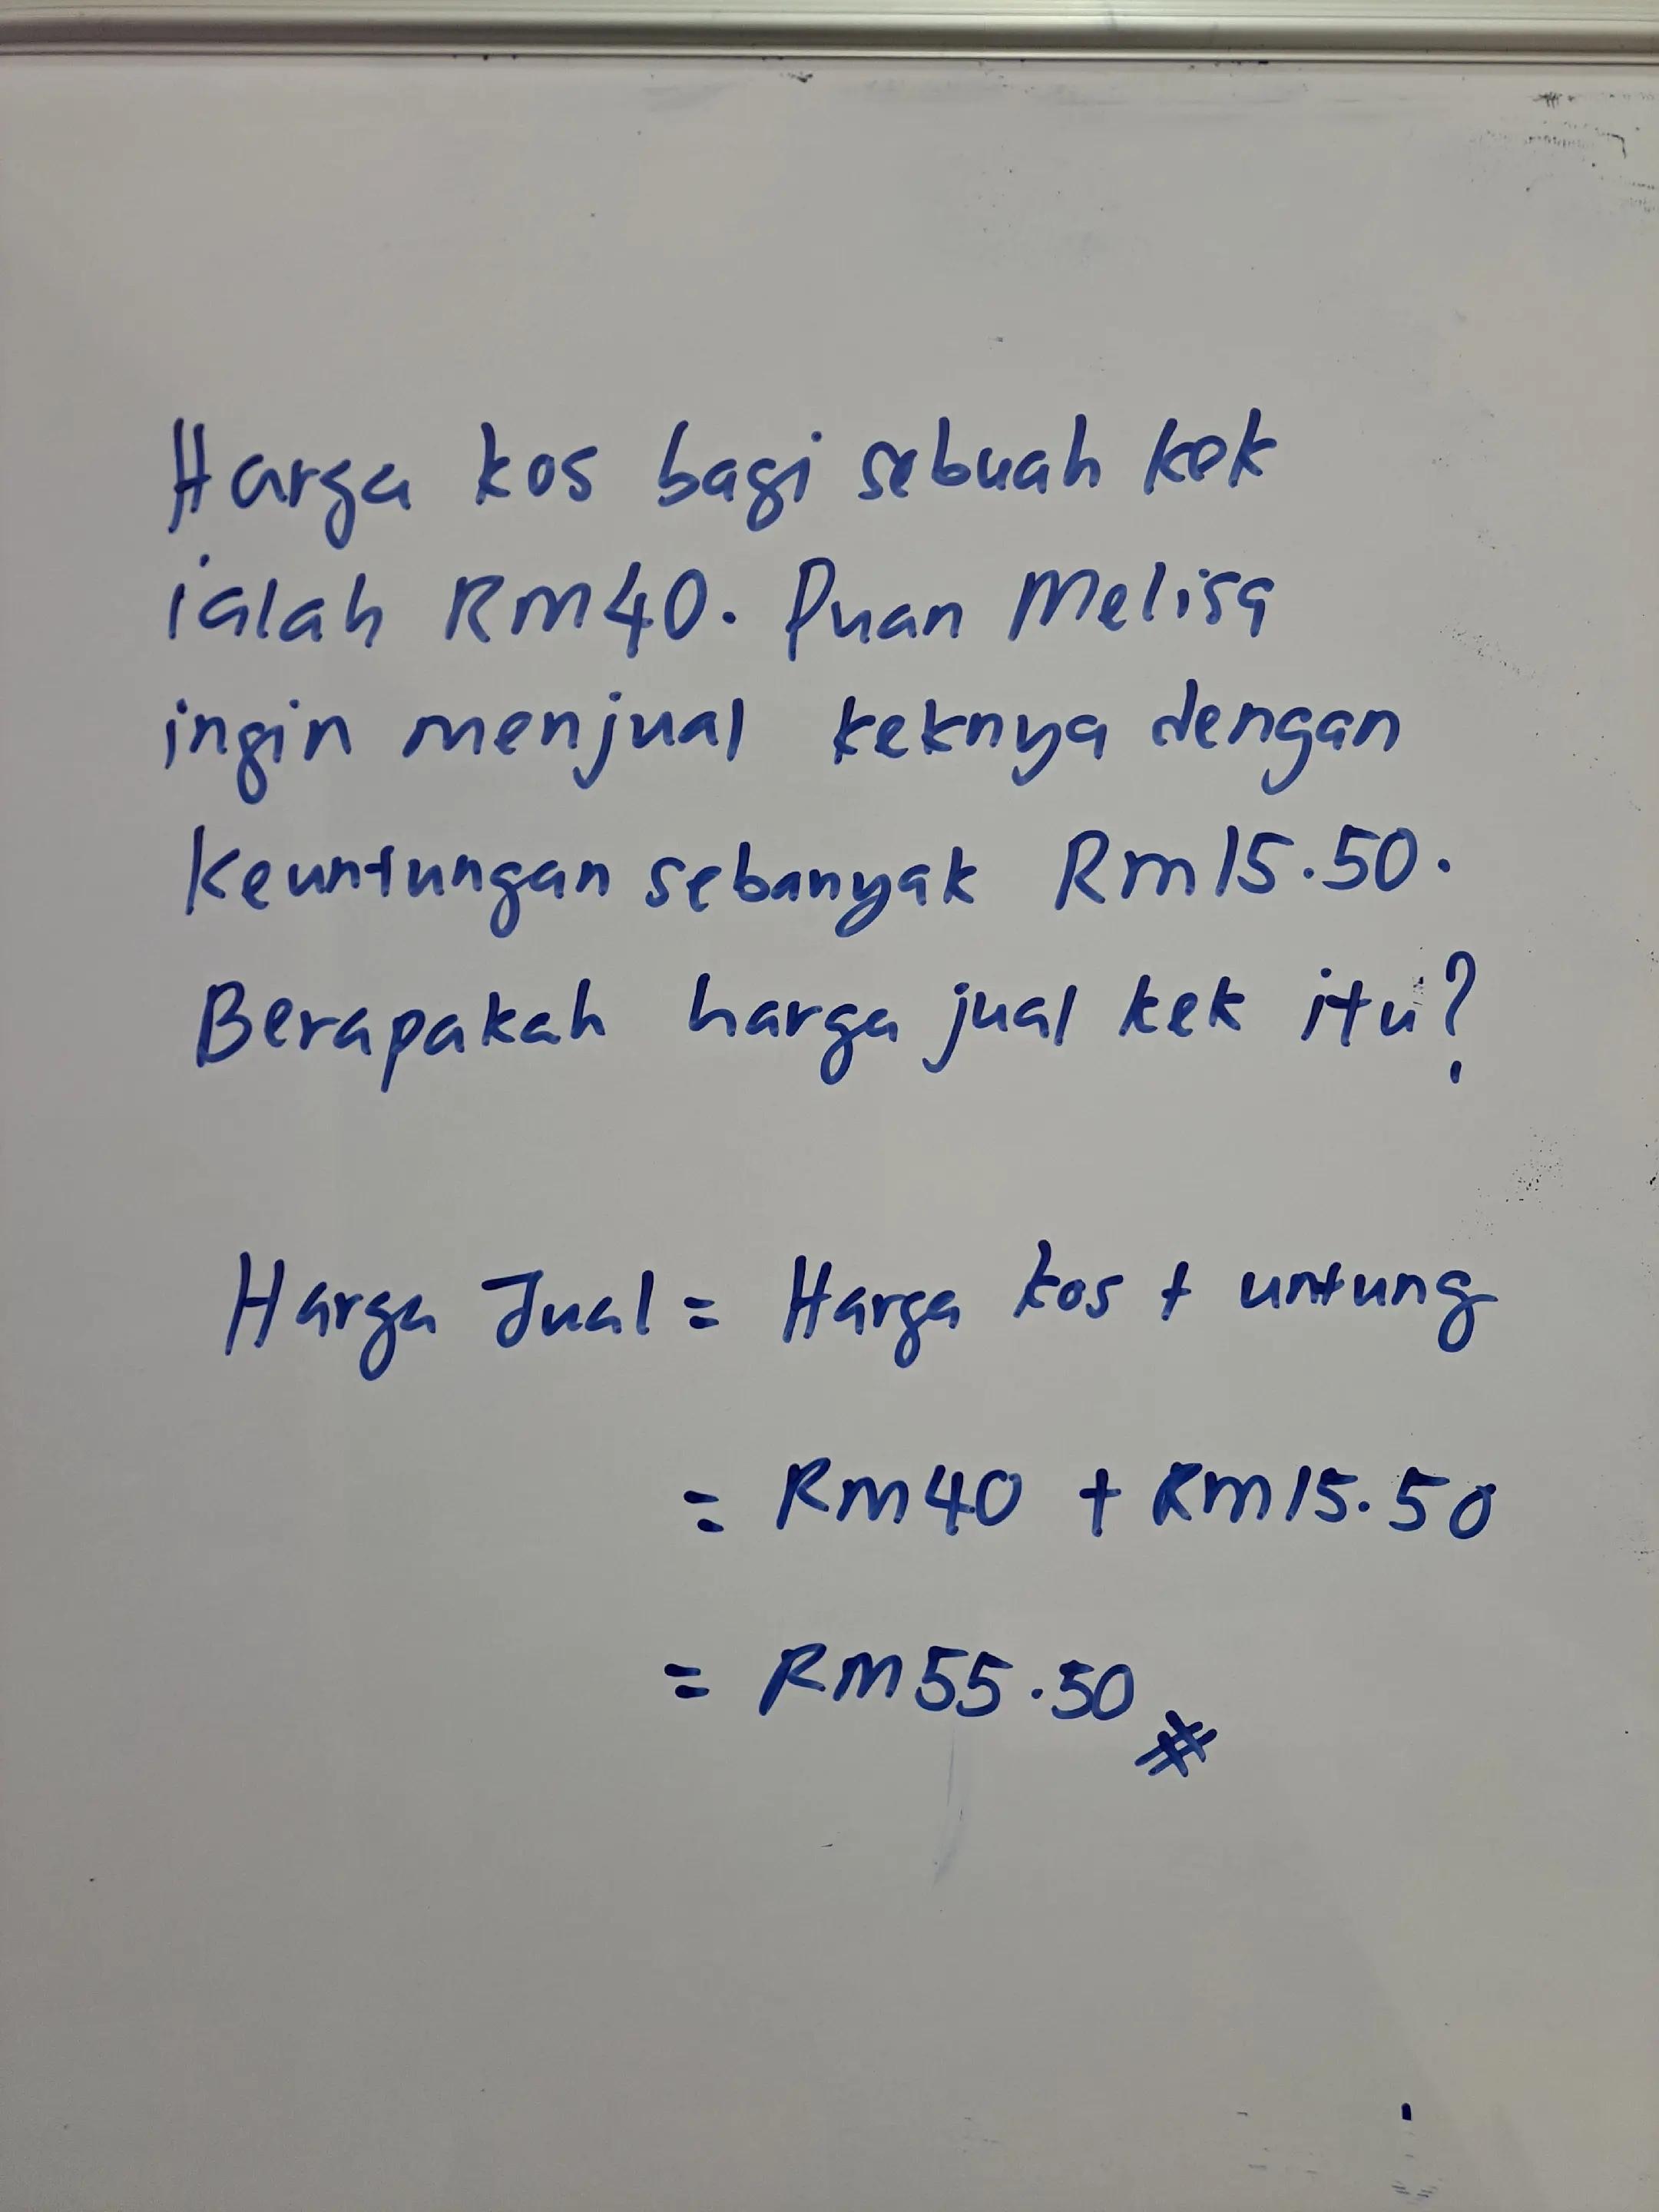 Harga kos bagi sebuah kek
ialah RM40. Puan Melisa
ingin menjual keknya dengan
keuntungan sebanyak RM15.50.
Berapakah harga jual kek itu?
Harga Jual = Harga kos + untung
= RM40 + RM15.50
= RM55.50